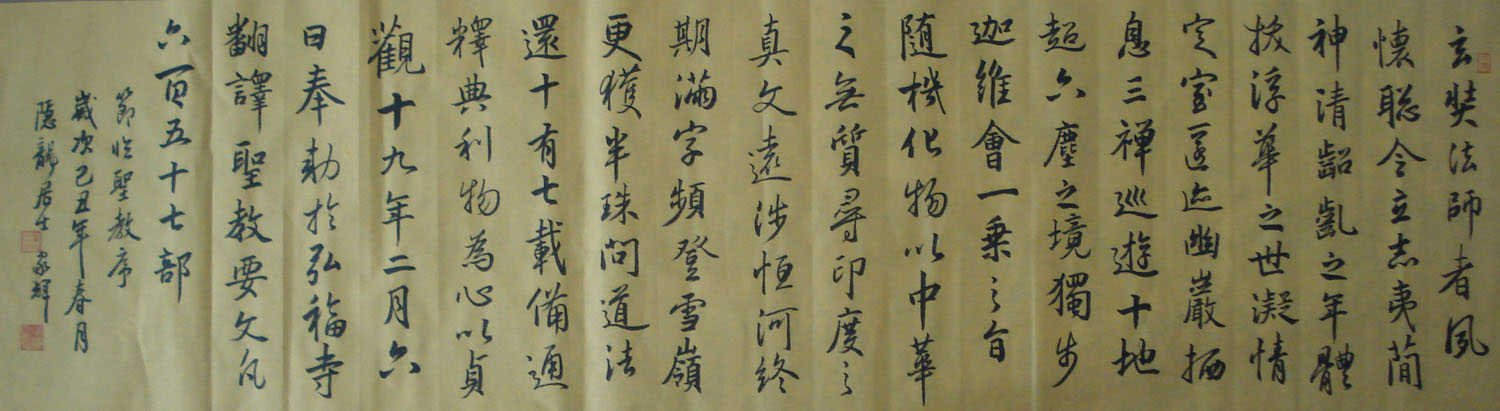 玄奘法師者夙
懷聡令立志夷蕳
神清齠齓之年體
拔浮華之世凝情
定室匿迹幽巖栖
息三禪巡遊十地
超六塵之境獨步
迦維會一乗之旨
随機化物以中華
之無質尋印度之
真文遠涉恒河終
期滿字頻登雪嶺
更獲半珠問道法
還十有七載備通
釋典利物為心以貞
觀十九年二月六
日奉勅於弘福寺
翻譯聖教要文凡
六百五十七部
節临聖教序
歲次己丑年春月
隱龍居士 家輝